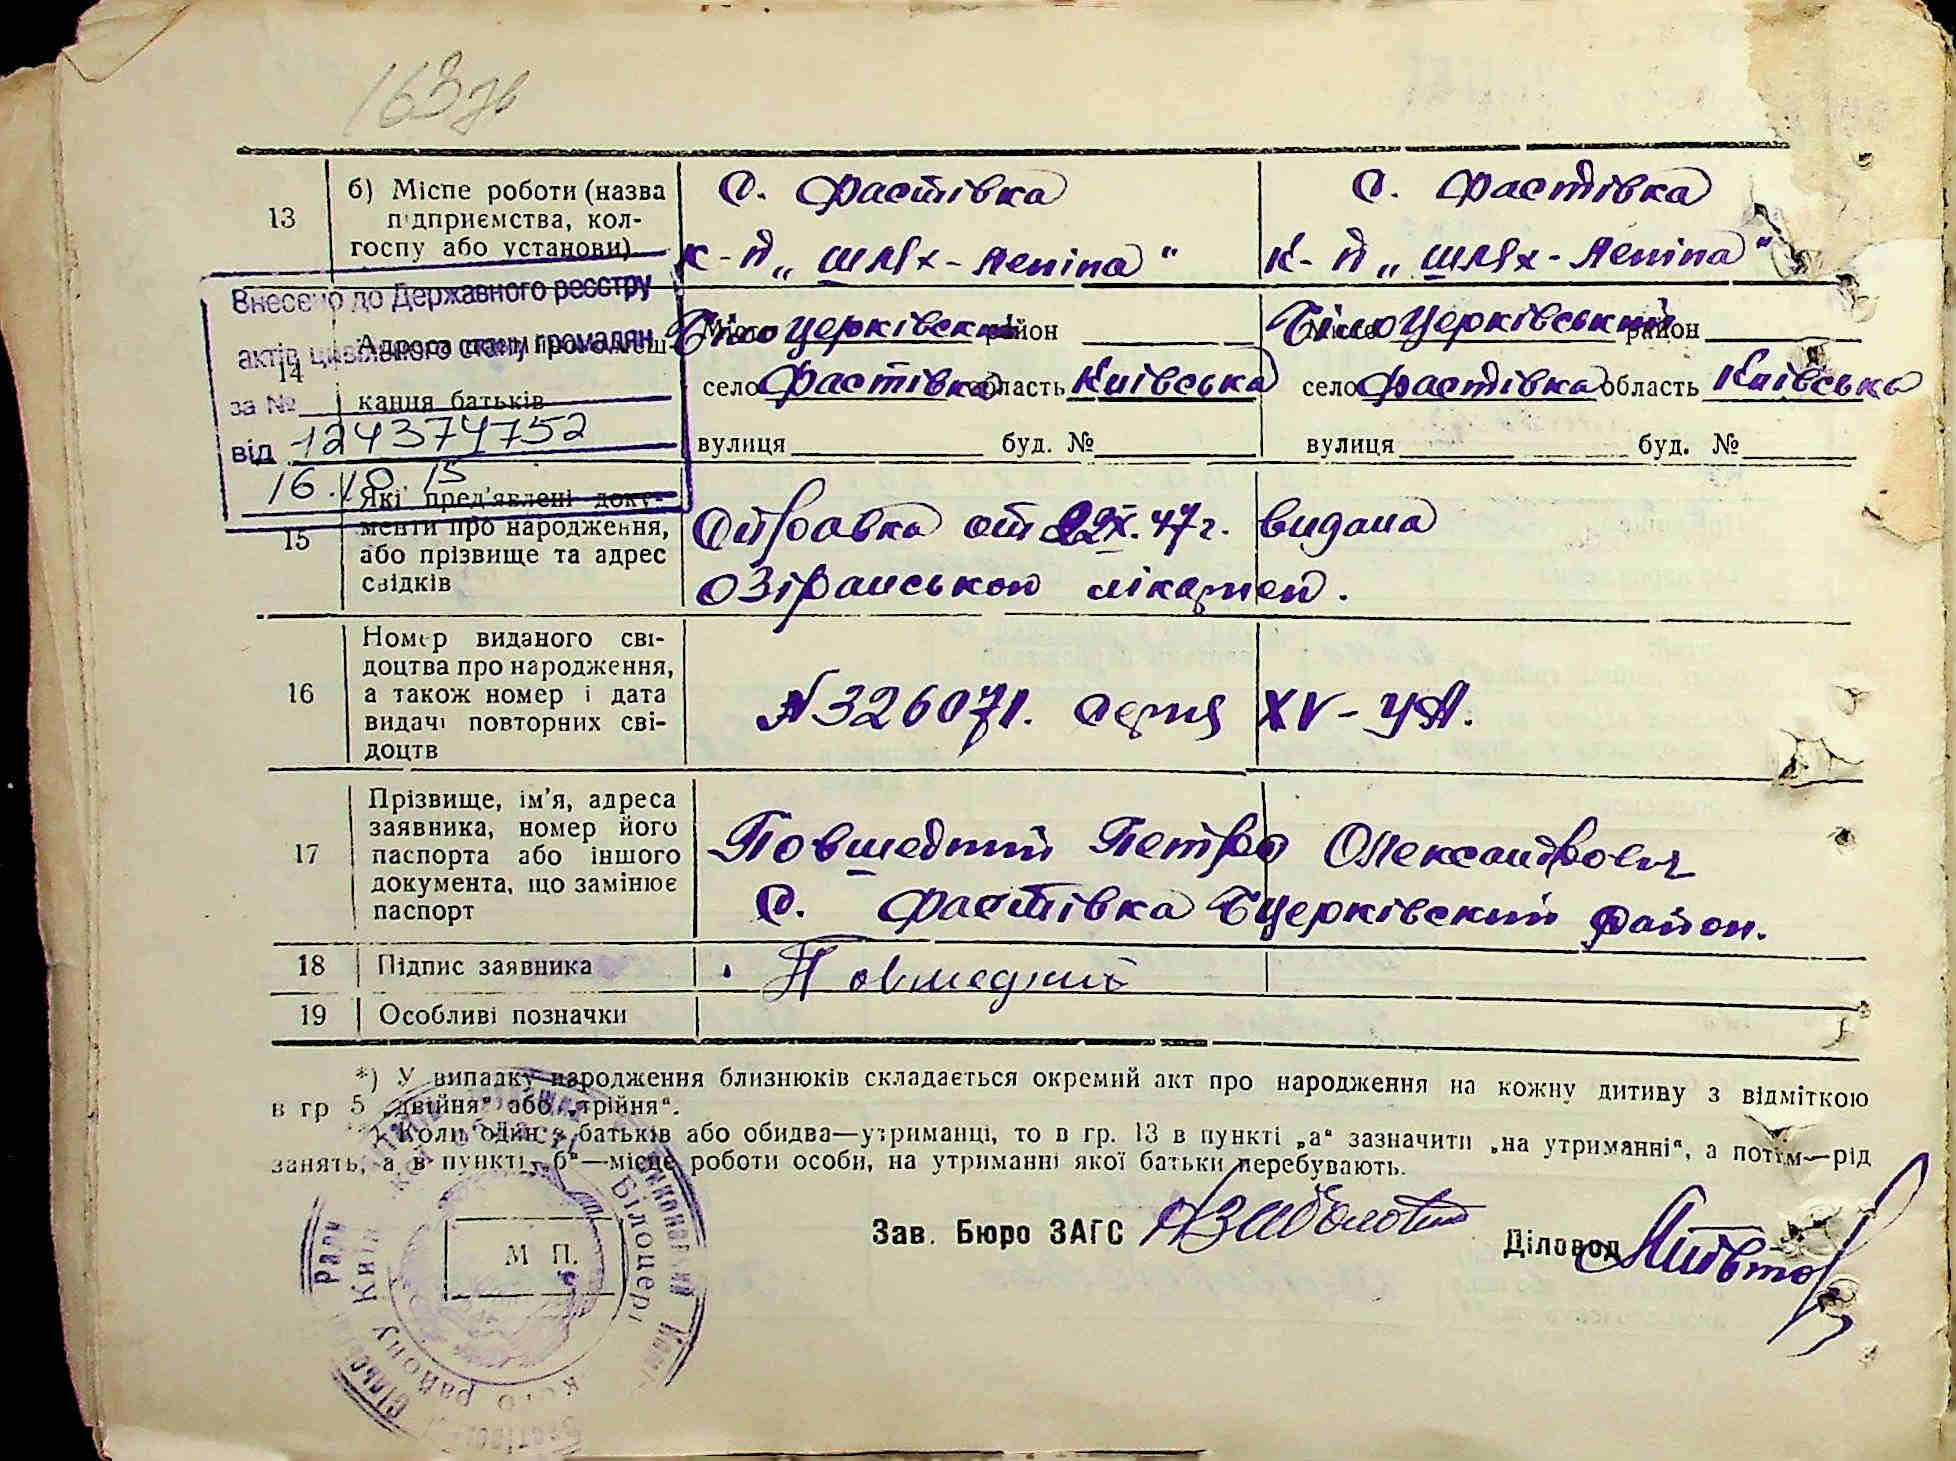 163 зв
13
б) Місце роботи (назва
підприємства, кол-
госпу або установи)
с. Фастівка
к-п „Шлях-Леніна"
с. Фастівка
к-п „Шлях-Леніна"
Внесено до Державного реєстру
актів цивільного стану громадян
за №
124374752
від
16.10.15
14
Адреса
канця батьків
Місто Білоцерківський район
село Фастівка область Київська
вулиця буд. №
Місто Білоцерківський район
село Фастівка область Київська
вулиця буд. №
15
Які пред'явлені доку-
менти про народження,
або прізвище та адрес
свідків
Справка от 22 ІХ. 47 г. видана
Озірнською лікарней.
16
Номер виданого сві-
доцтва про народження,
а також номер і дата
видачі повторних сві-
доцтв
№ 326071. серия XV-УЯ.
17
Прізвище, ім'я, адреса
заявника, номер його
паспорта або іншого
документа, що замінює
паспорт
Повшедний Петро Олександрович
с. Фастівка Бцерківский район.
18
Підпис заявника
Повшедний
19
Особливі позначки
*) У випадку народження близнюків складається окремий акт про народження на кожну дитину з відміткою
в гр 5 „двійня“ або „трійня“.
**) Коли один з батьків або обидва—утриманці, то в гр. 13 в пункті „а“ зазначити „на утриманні“, а потім—рід
занять, а в пункті „б“—місце роботи особи, на утриманні якої батьки перебувають.
М П.
Зав. Бюро ЗАГС
Діловод